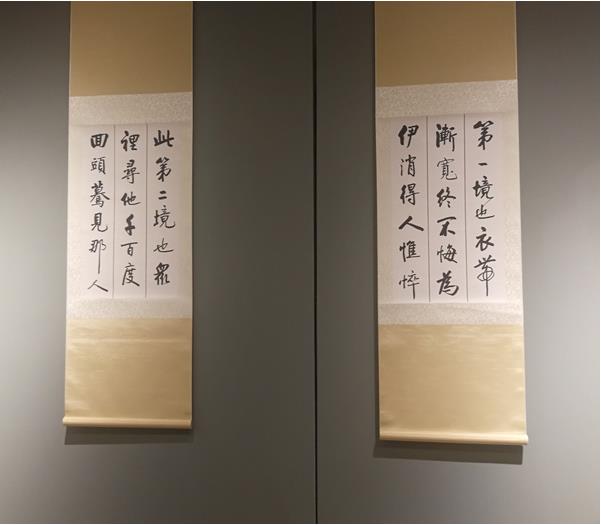 第一境也衣帶
漸寬終不悔為
伊消得人惟悴
此第二境也眾
裡尋他千百度
回頭驀見那人